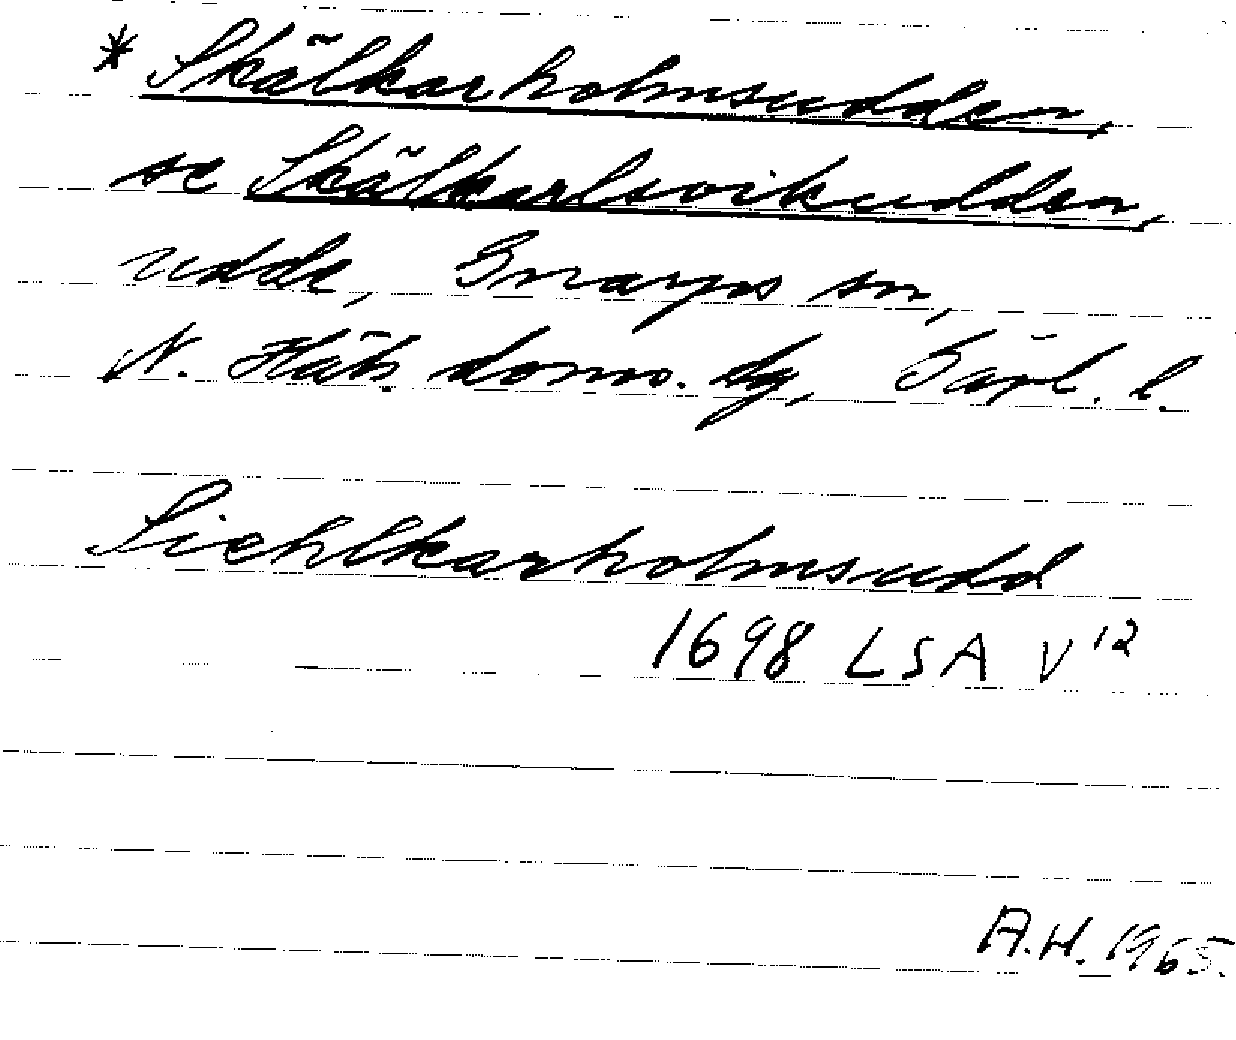 * Skälkarholmsudden,
se Skälkarlsvikudden,
udde, Gnarps sn,
N. Häls. doms. dg, Gävl. l.
Siehlkarholmsudd
1698 LSA V 12
A.H. 1965.